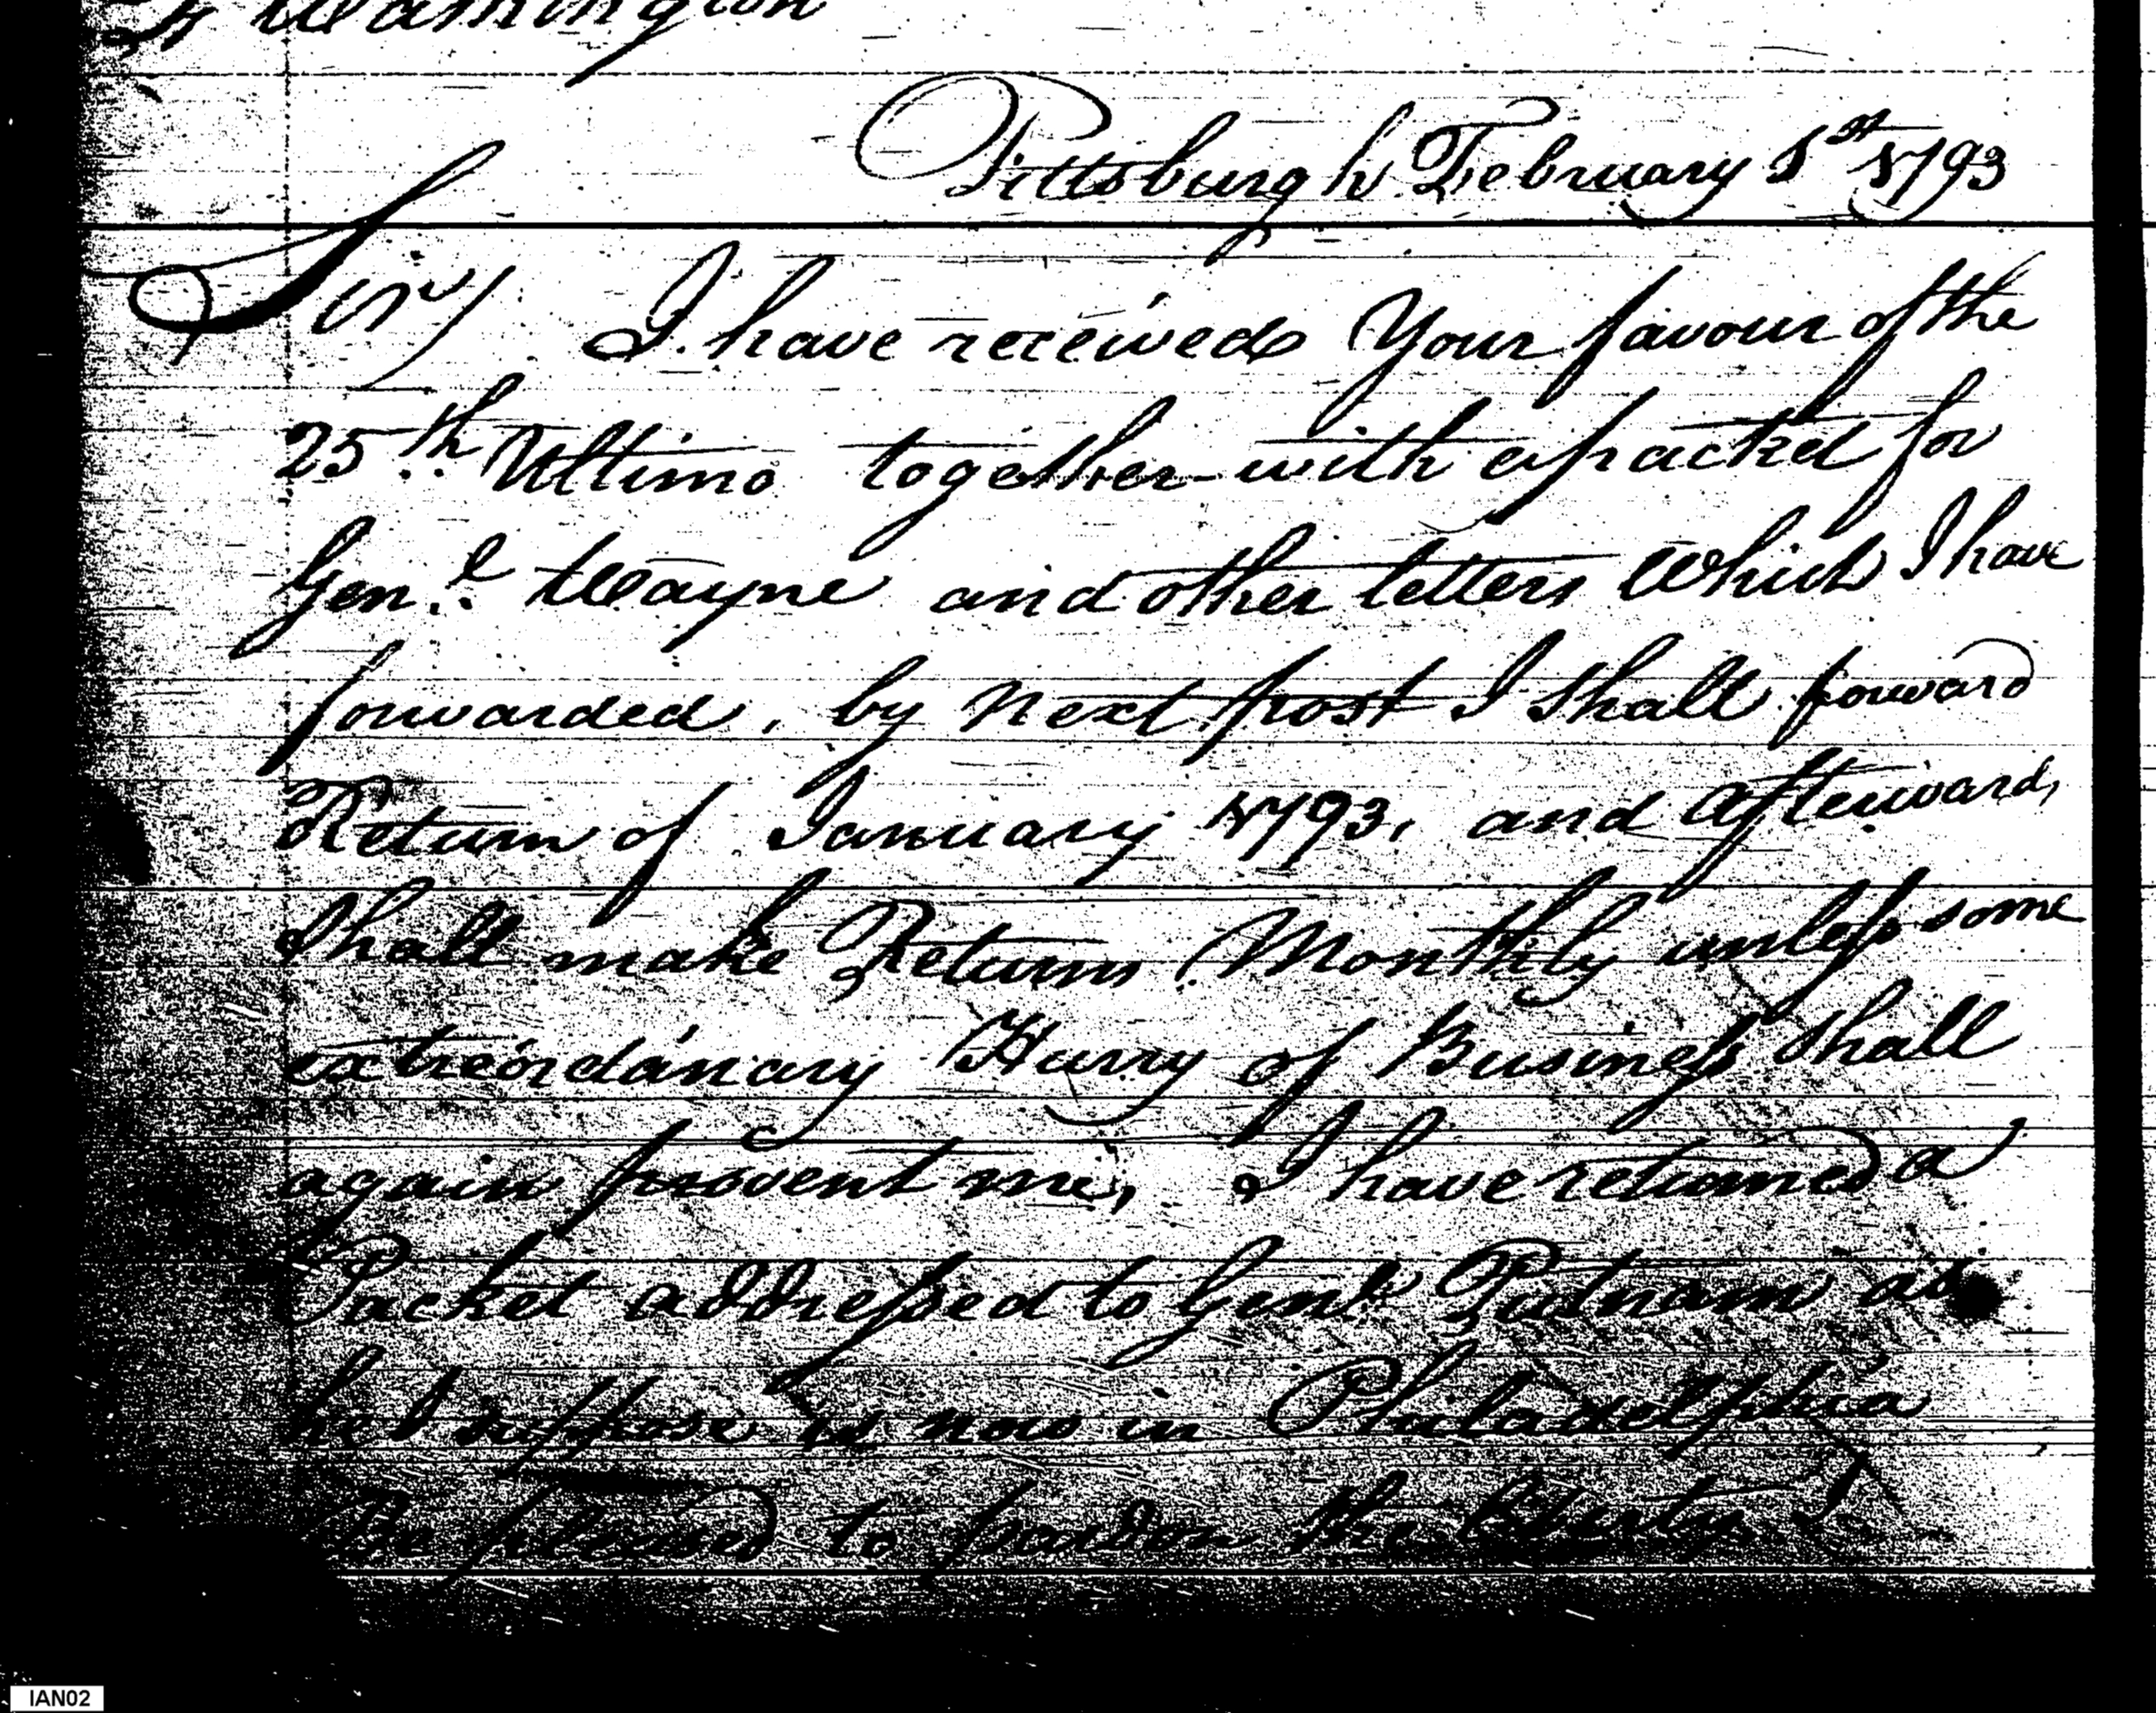 Washington
Pittsburgh February 1st 1793
Sir/ I have received Your favour of the
25th Ultimo together with a packet for
Genl Wayne and other letters Which I have
forwarded, by next post I shall forward
Return of January 1793, and afterward,
shall make Returns Monthly unless some
extreordanary Hurry of Business shall
again prevent me, I have returned a
Packet addressed to Genl Putnam as
he I suppose is now in Philadelphia
Be pleased to pardon the liberty I
IAN02